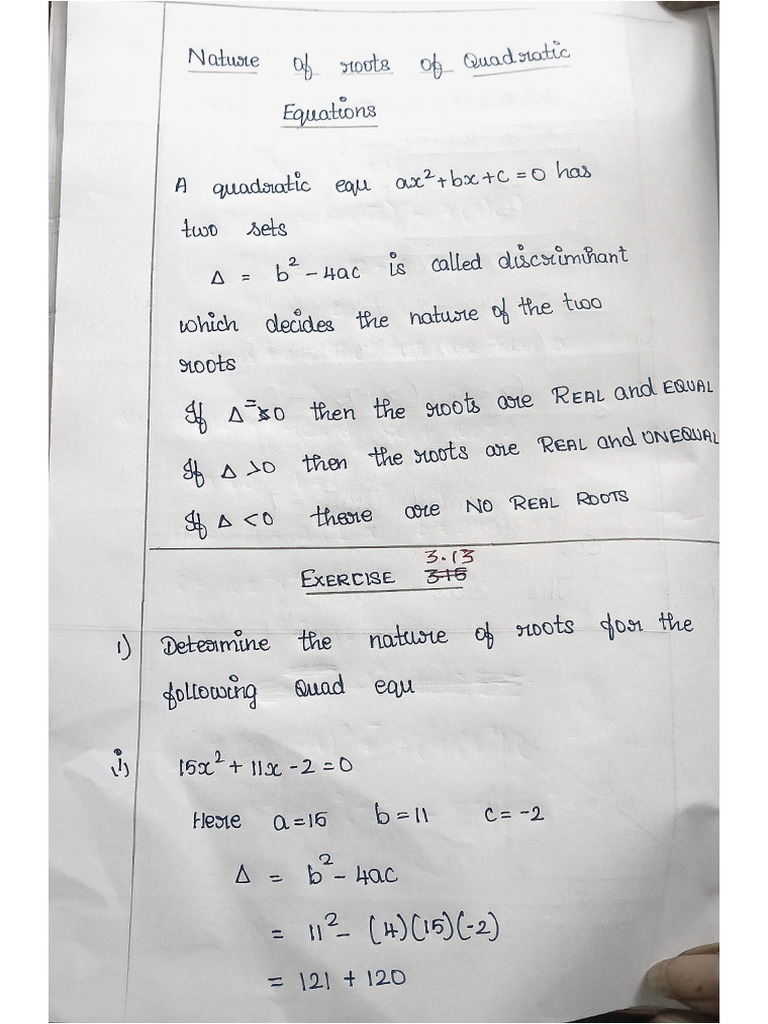 Nature of roots of Quadratic
Equations
A quadratic equ ax²+bx+c=0 has
two sets
Δ = b²-4ac is called discriminant
which decides the nature of the two
roots
If Δ=0 then the roots are REAL and EQUAL
If Δ>0 then the roots are REAL and UNEQUAL
If Δ<0 there are NO REAL ROOTS
3.13
EXERCISE 3.15
1) Determine the nature of roots for the
following Quad equ
i) 15x²+11x-2=0
Here a=15 b=11 c=-2
Δ = b²-4ac
= 11²-(4)(15)(-2)
= 121+120